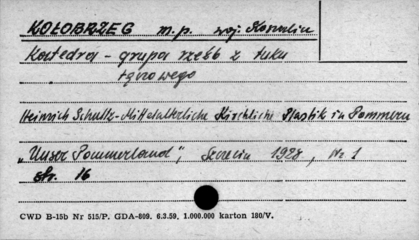 KOŁOBRZEG m.p. woj. Koszalin
Katedra - grupa rzeźb z łuku
tęczowego
Heinrich Schultz - Mittelalterliche Kirchliche Plastik in Pommern
„Unser Pommerland", Szczecin 1928, Nr 1
str. 16
CWD B-15b Nr 515/P. GDA-809. 6.3.59. 1.000.000 karton 180/V.